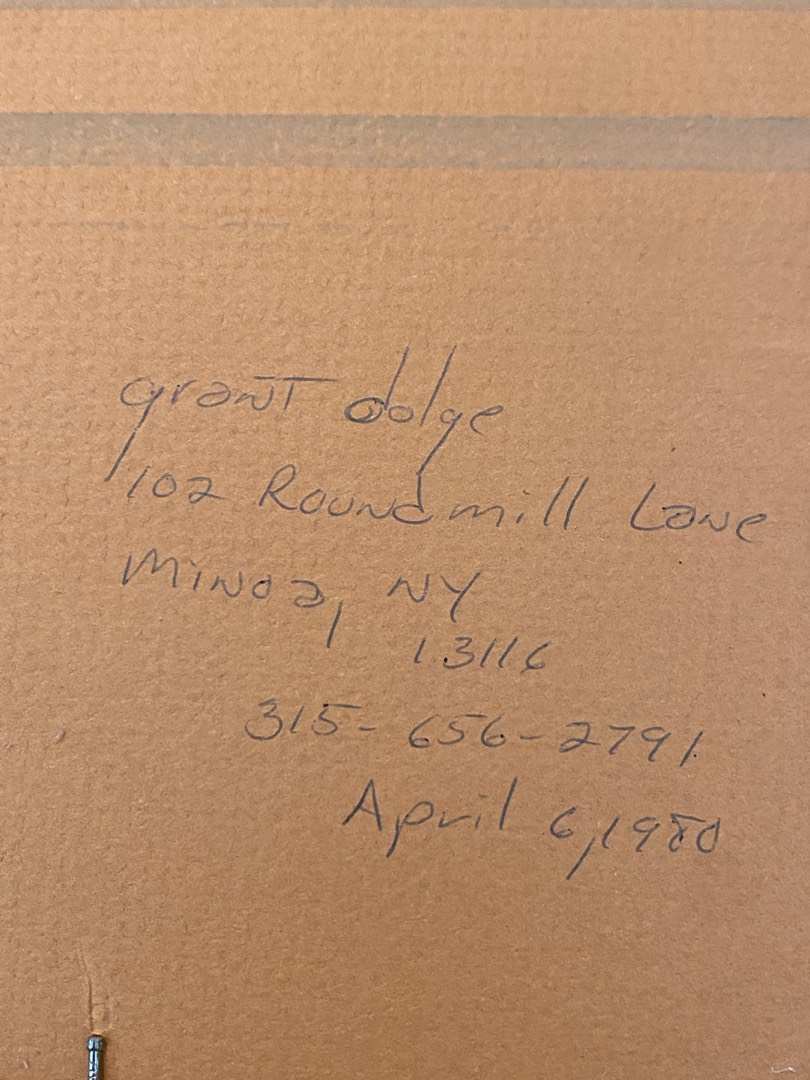 grant dolge
102 Roundmill Lane
Minoa, NY
13116
315-656-2791
April 6, 1980